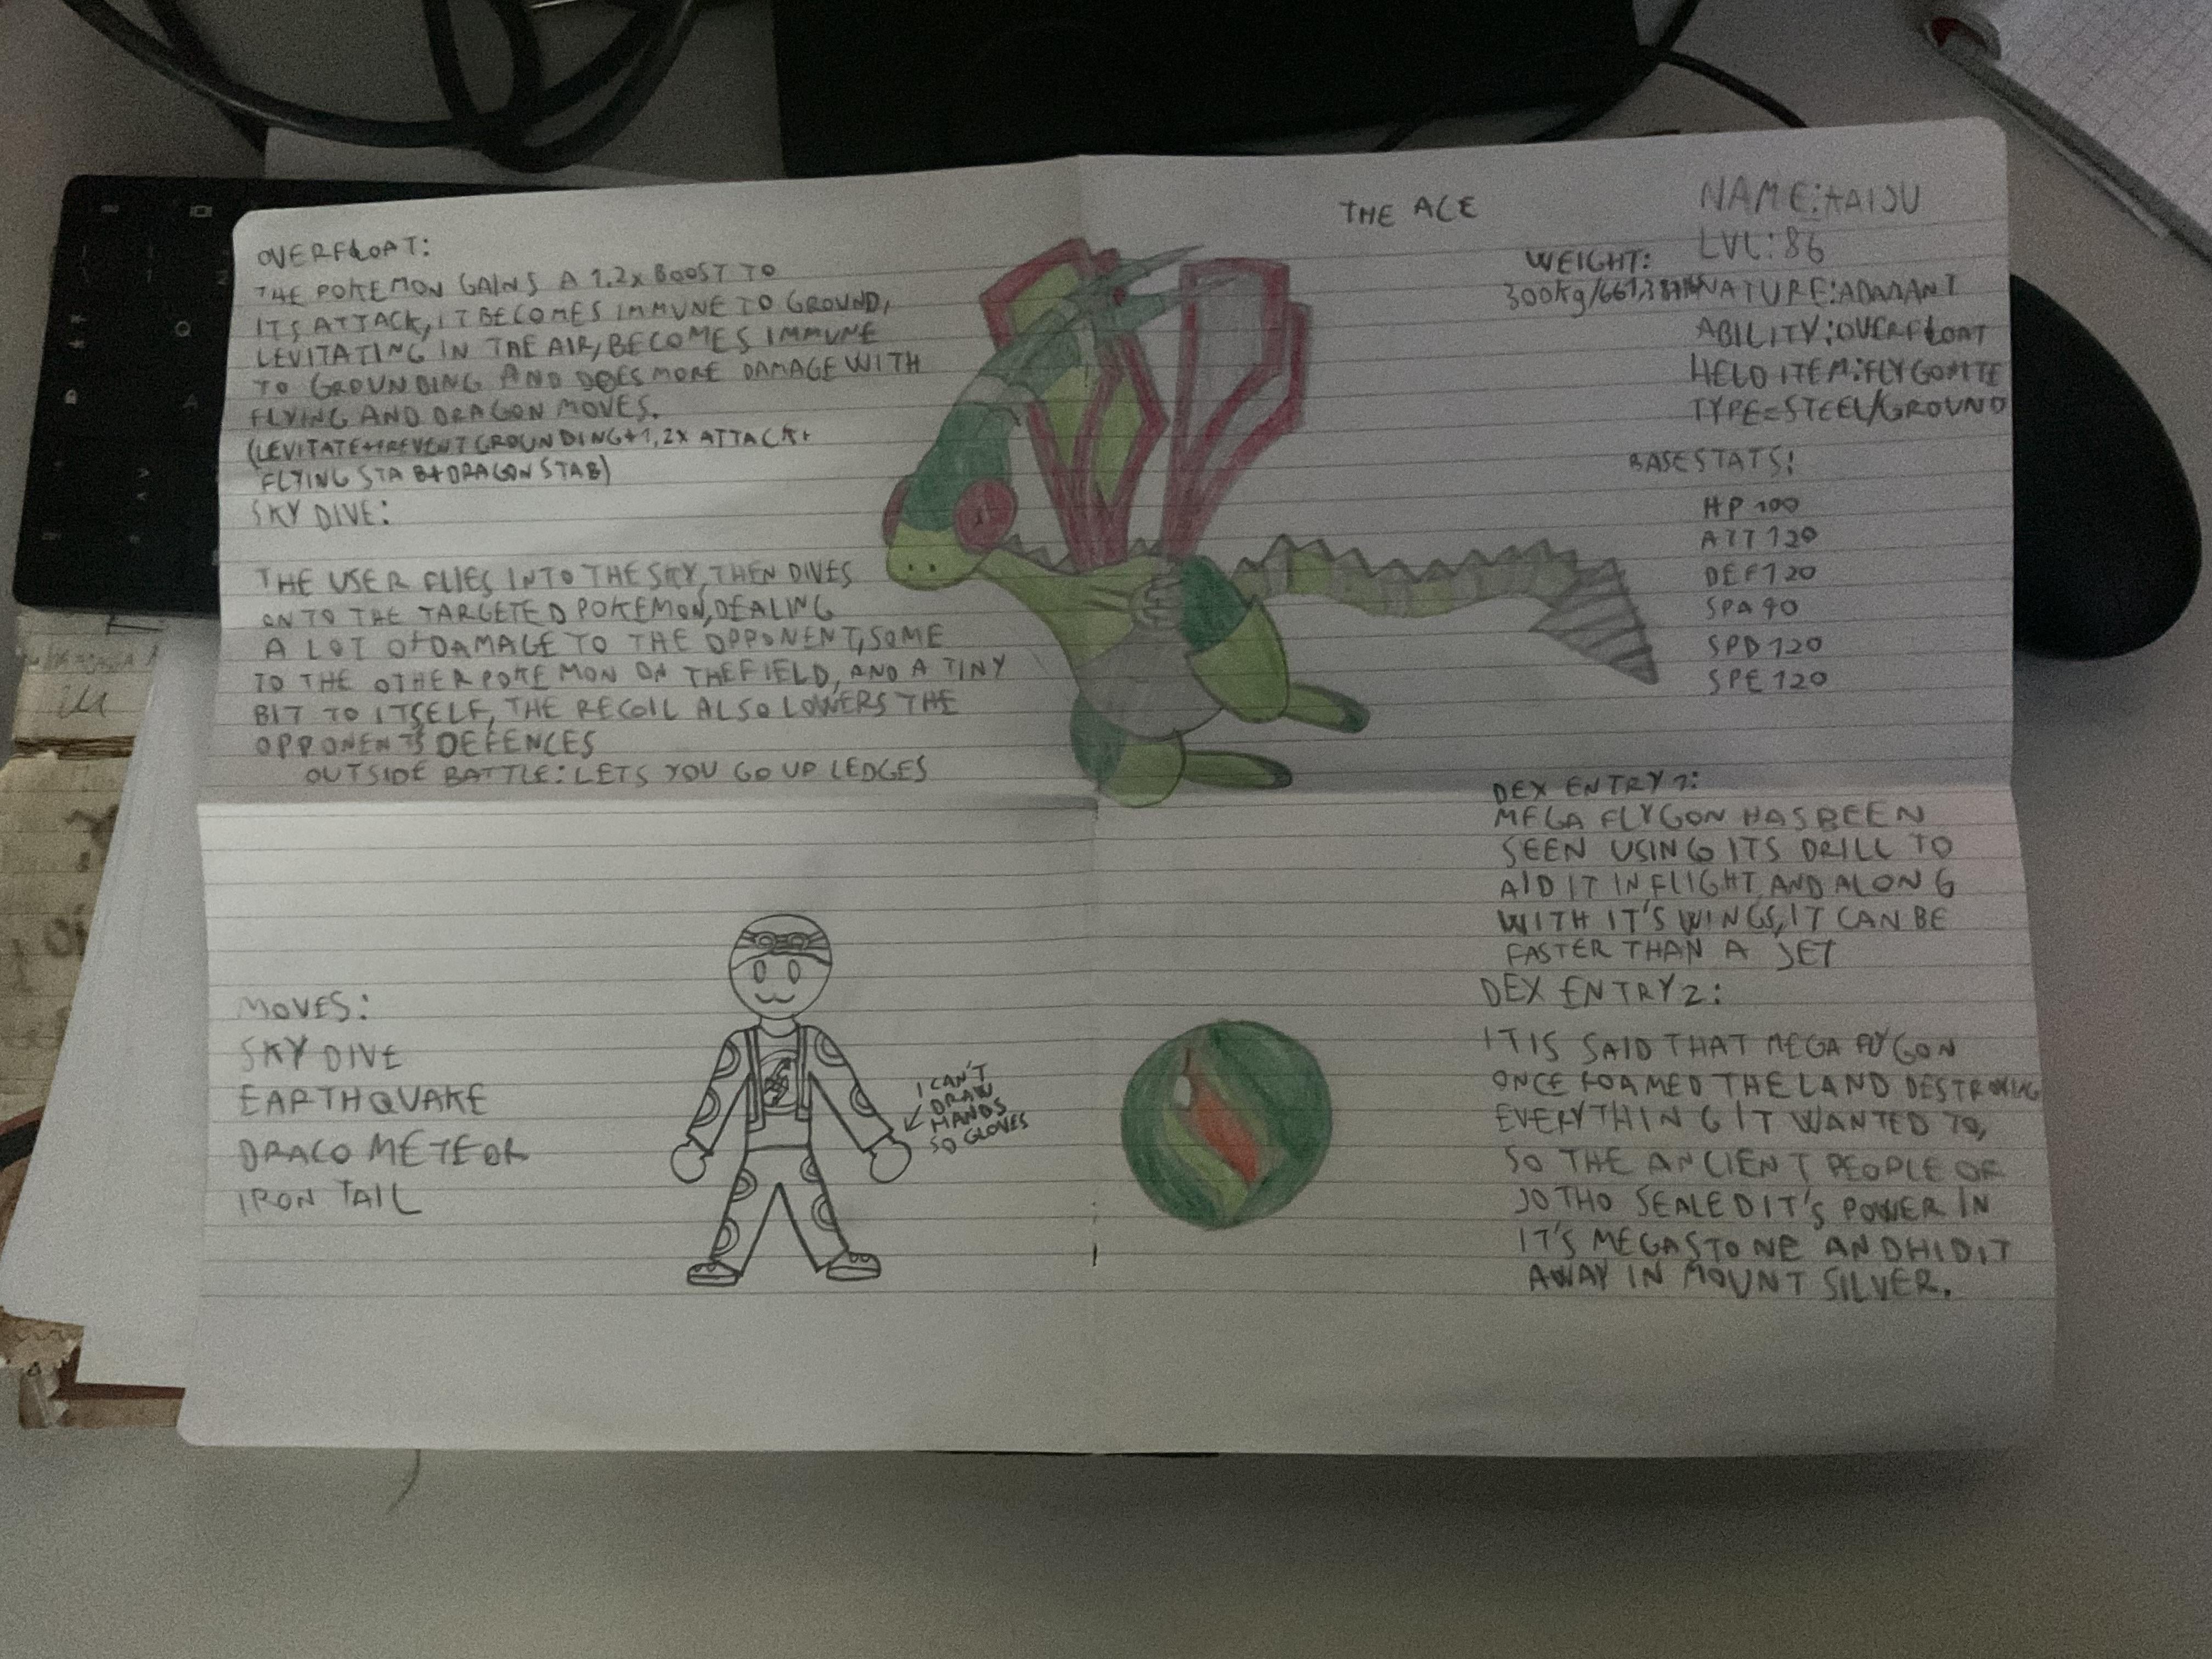 THE ACE
OVERFLOAT:
THE POKEMON GAINS A 1.2x BOOST TO
ITS ATTACK, IT BECOMES IMMUNE TO GROUND,
LEVITATING IN THE AIR, BECOMES IMMUNE
TO GROUNDING AND DOES MORE DAMAGE WITH
FLYING AND DRAGON MOVES.
(LEVITATE+PREVENT GROUNDING+1,2X ATTACK+
FLYING STAB+DRAGON STAB)
SKY DIVE:
THE USER FLIES INTO THE SKY, THEN DIVES
ONTO THE TARGETED POKEMON, DEALING
A LOT OF DAMAGE TO THE OPPONENT, SOME
TO THE OTHER POKEMON ON THE FIELD, AND A TINY
BIT TO ITSELF, THE RECOIL ALSO LOWERS THE
OPPONENTS DEFENCES
OUTSIDE BATTLE: LETS YOU GO UP LEDGES
NAME:
LVL:86
WEIGHT:
300Kg/
NATURE:ADAMANT
ABILITY:OVERFLOAT
HELD ITEM:FLYGONITE
TYPE=STEEL/GROUND
BASE STATS:
HP 100
ATT 120
DEF 120
SPA 90
SPD 120
SPE 120
MOVES:
SKY DIVE
EARTHQUAKE
DRACO METEOR
IRON TAIL
I CAN'T
DRAW
HANDS
SO GLOVES
DEX ENTRY 1:
MEGA FLYGON HAS BEEN
SEEN USING ITS DRILL TO
AID IT IN FLIGHT, AND ALONG
WITH IT'S WINGS, IT CAN BE
FASTER THAN A JET
DEX ENTRY 2:
IT IS SAID THAT MEGA FLYGON
ONCE ROAMED THE LAND DESTROYING
EVERYTHING IT WANTED TO,
SO THE ANCIENT PEOPLE OF
JOTHO SEALED IT'S POWER IN
IT'S MEGASTONE AND HID IT
AWAY IN MOUNT SILVER.